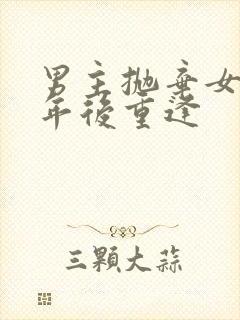 男主抛棄女
年後重逢
三顆大蒜